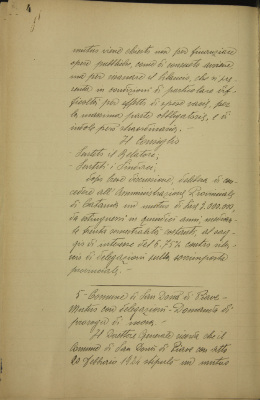 mutuo viene chiesto non per finanziare
opere pubbliche, come di consueto avviene
ma per sanare il bilancio, che si pre-
senta in condizioni di particolare dif-
ficoltà per effetto di spese
la massima parte obbligatorie, e di
indole però straordinaria. -
Il Consiglio
- Sentito il Relatore;
- Sentiti i Sindaci;
Dopo breve discussione, delibera di con-
cedere all'Amministrazione Provinciale
di un mutuo di lire 2.000.000,
da estinguersi in quindici anni, median-
te annualità costanti, al sag-
gio di interesse del 6,75% contro rila-
scio di delegazioni sulla sovrimposta
provinciale. -
5 - Comune di San Donà di Piave -
Mutuo con delegazioni - Domanda di
proroga di mora. -
Il Direttore Generale ricorda che il
Comune di San Donà di Piave con atto
20 Febbraio 1924 stipulò un mutuo